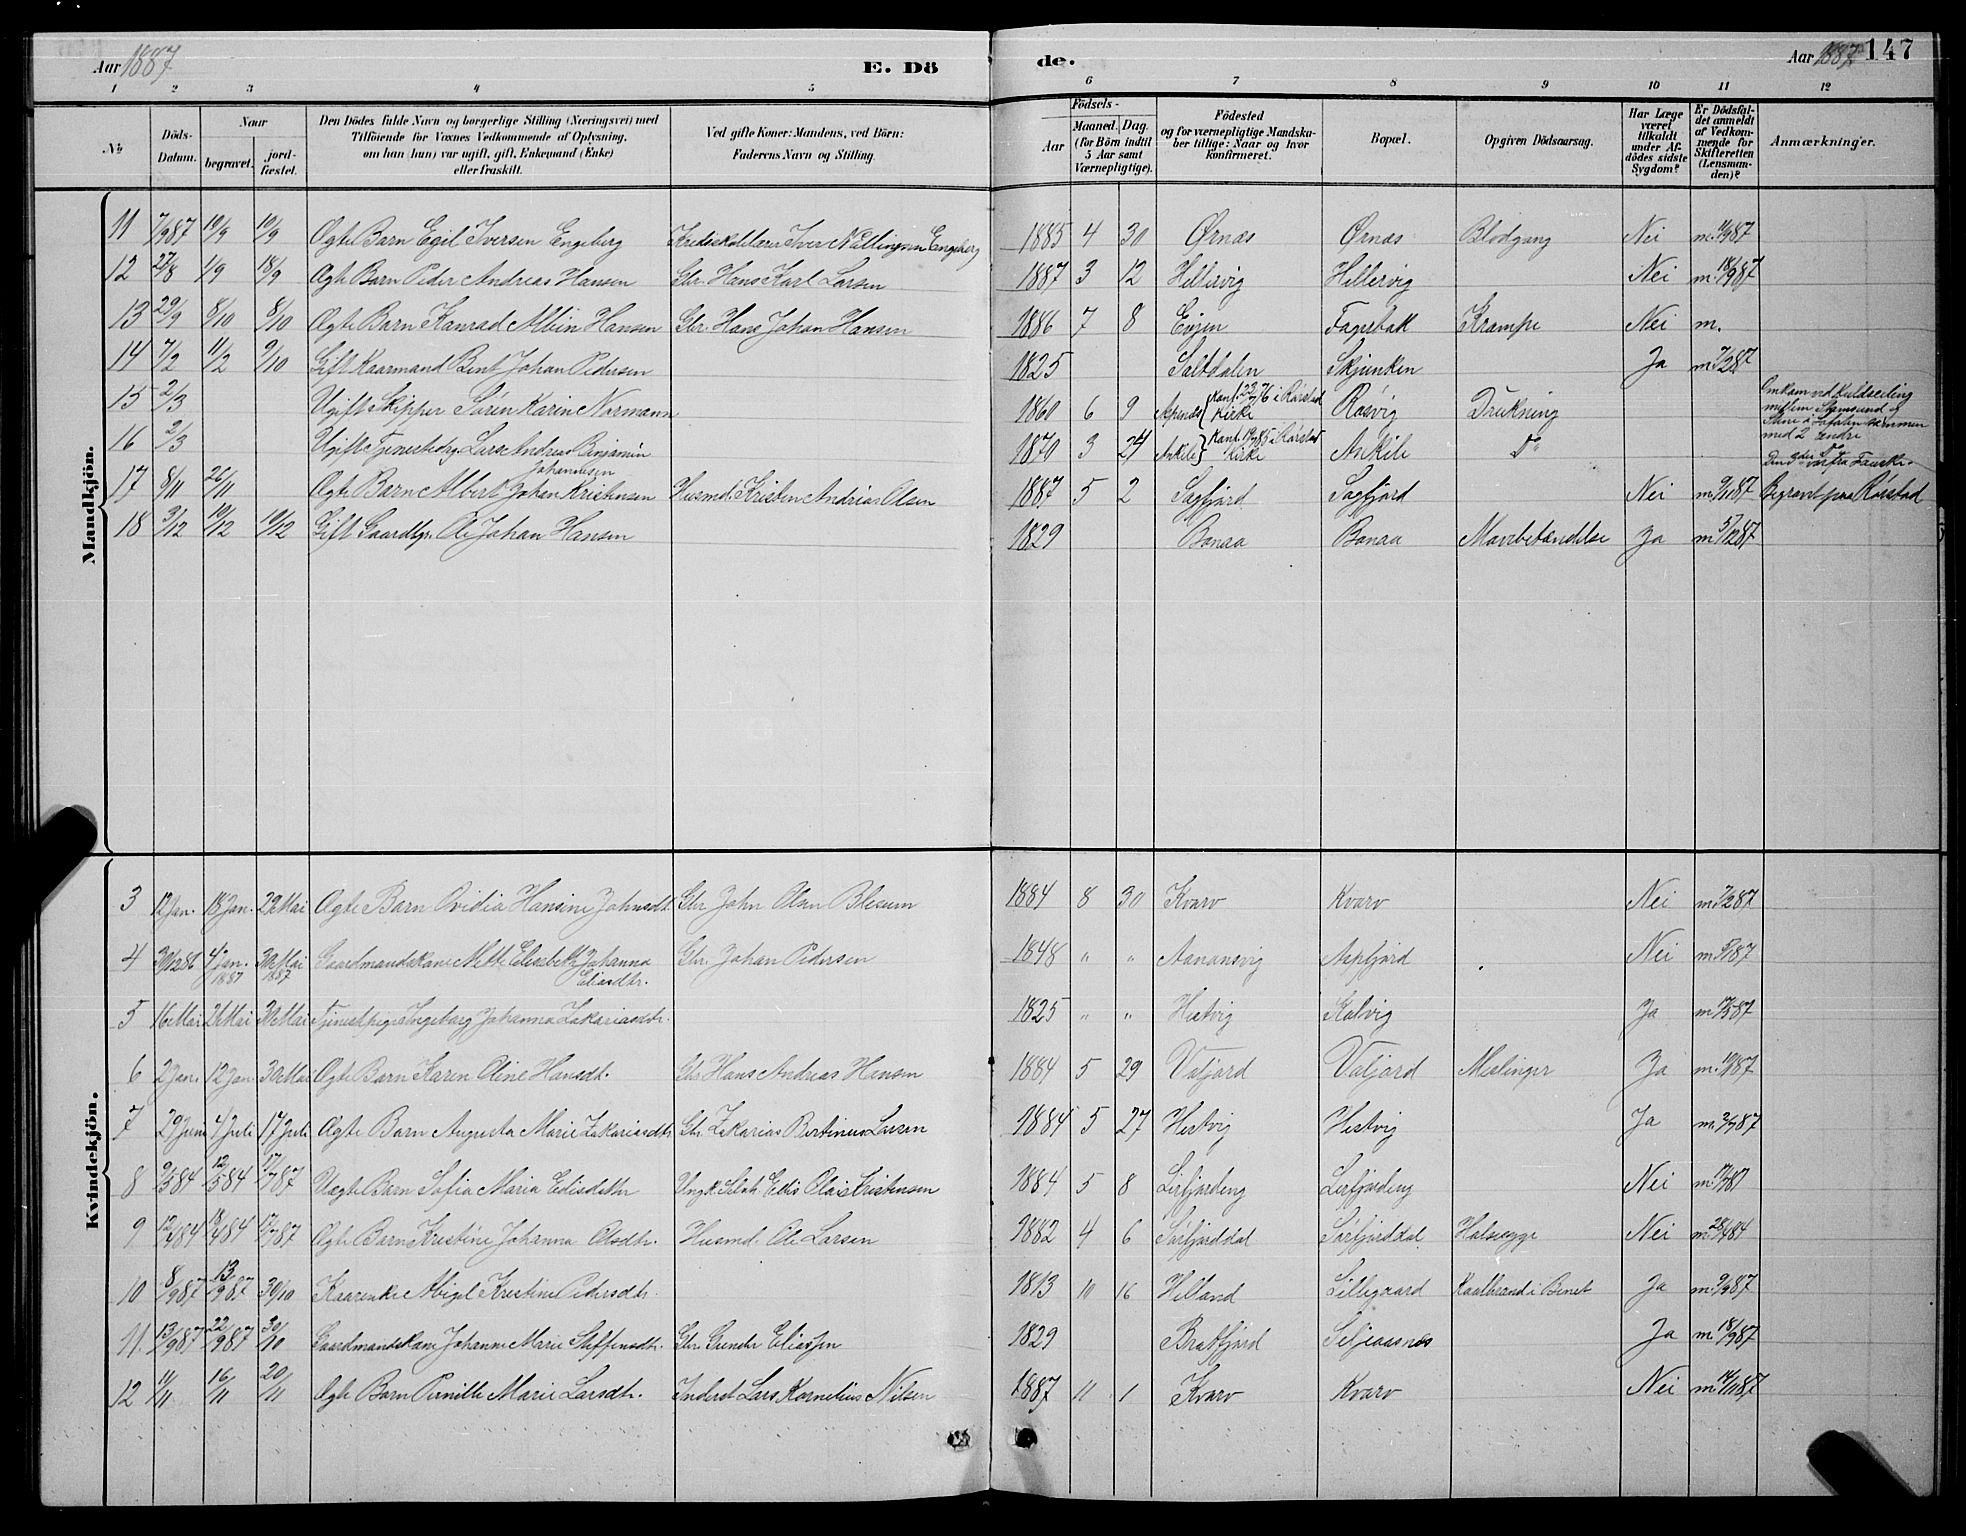 Aar 1887
E. Dö
de.
Aar 1887. 147
1 2 3 4 5 6 7 8 9 10 11 12
No
Döds-Datum.
Naar
begravet.
jord-fæstet.
Den Dödes fulde Navn og borgerlige Stilling (Næringsvei) med
Tilföiende for Voxnes Vedkommende af Oplysning,
om han (hun) var ugift, gift, Enkemand (Enke)
eller fraskilt.
Ved gifte Koner: Mandens, ved Börn:
Faderens Navn og Stilling.
Födsels-
Aar
Maaned. Dag.
(for Börn indtil
5 Aar samt
Værnepligtige).
Födested
og for værnepligtige Mandska-
ber tillige: Naar og hvor
konfirmeret.
Bopæl.
Opgiven Dödsaarsag.
Har Læge
været
tilkaldt
under Af-
dödes sidste
Sygdom?
Er Dödsfal-
det anmeldt
af Vedkom-
mende for
Skifteretten
(Lensman-
den)?
Anmærkninger.
Mandkjön.
11 7/9 87 19/9 19/9 Ægte Barn Egil Iversen Engeberg Iver Engeberg 1885 4 30 Ørnæs Ørnæs Blodgang Nei
12 27/8 1/9 18/9 Ægte Barn Peder Andreas Hansen Gbr. Hans Karl Larsen 1887 3 12 Hellervig Hellervig Nei m. 18/9 87
13 29/9 8/10 8/10 Ægte Barn Konrad Albin Hansen Gbr. Hans Johan Hansen 1886 7 8 Evjen Fagerbak Krampe Nei m.
14 7/2 11/2 9/10 Gift Kaarmand Bent Johan Pedersen 1825 Saltdalen Skjunken Ja m. 7/2 87
15 2/3 Ugift Skipper Sören Karin Normann 1860 6 9 kirke Røsvig Drukning
Omkom ved Kuldseiling
mellem Stamsund og
med 2 andre
16 2/3 Ugift Lars Andreas Binjamin
Johannesen 1870 3 24 Ankile kirke Ankile Do
17 8/11 26/11 Ægte Barn Albert Johan Kristensen Husmd. Kristen Andrias Olsen 1887 5 2 Sagfjord Sagfjord Nei m. 9/11 87 Begravet paa Rørstad
18 3/12 19/12 19/12 Gift Gaardbr. Ole Johan Hansen 1829 Bonaa Bonaa Mavebetændelse Ja m. 5/12 87
Kvindekjön.
3 12 Jan. 18 Jan. 29 Mai Ægte Barn Ovidia Hansine Johnsdt. Gbr. John Olsen 1884 8 30 Kvarv Kvarv Nei m. 7/2 87
4 30/12 86 4 Jan. 1887 30 Mai 1887 Gaardmandskone Mette Elisabeth Johanna
Eliasdtr. Gbr. Johan Pedersen 1848 " " Aspfjord Nei
5 16 Mai 21 Mai 30 Mai Tjenestpige Ingeborg Johanna Zakariasdtr. 1825 " " Hestvig Kalvig Ja
6 2 Jan. 12 Jan. 30 Mai Ægte Barn Karen Oline Hansdt. Gbr. Hans Andreas Hansen 1884 5 29 Vatjord Vatjord Meslinger Ja
7 29 Juni 4 Juli 17 Juli Ægte Barn Augusta Marie Zakariasdtr. Gbr. Zakarias Bertinius Larsen 1884 5 27 Hestvig Hestvig Ja
8 9/5 84 12/5 84 17/7 87 Uægte Barn Sofia Maria Edisdatter Ungk. Edis Olai Kristensen 1884 5 8 Leifjording Leifjording Nei
9 12/4 84 18/4 84 17/7 87 Ægte Barn Kristine Johanna Olsdtr. Husmd. Ole Larsen 1882 4 6 Sørfjorddal Sørfjorddal Halssyge Nei m. 28/4 84
10 8/9 87 13/9 87 30/10 Kaarenke Abigel Kristine Pedersdtr. 1813 10 16 Helland Lillegaard Kaalbrand i Benet Ja m. 9/9 87
11. 13/9 87 22/9 87 30/10 Gaardmandskone Johanne Marie Steffensdtr. Gbr. Gunder Eliassen 1829 Bratfjord Siljeaasnes Ja m. 18/9 87
12 11/11 16/11 20/11 Ægte Barn Pernille Marie Larsdtr. Inderst Lars Kornelius Nilsen 1887 11 1 Kvarv Kvarv Nei m. 14/11 87